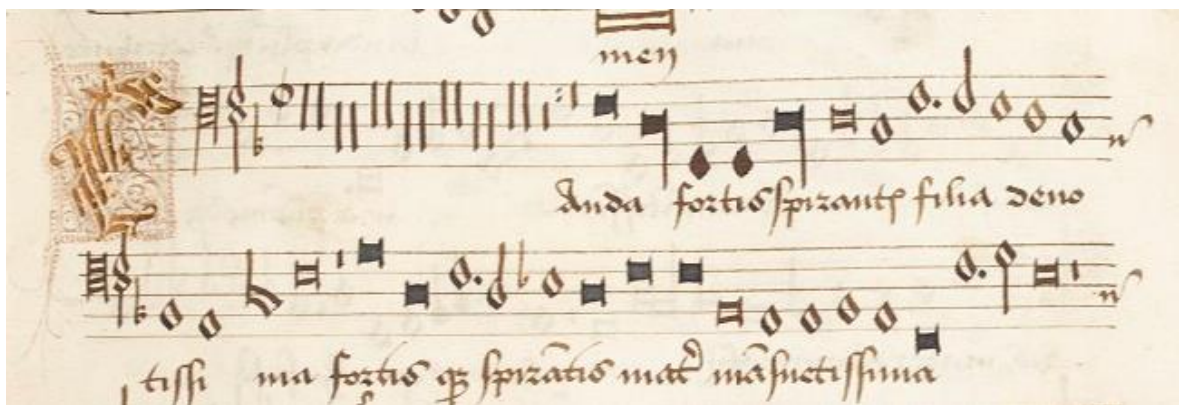 men
Anda fortis spirantis filia devo
tissi ma fortis qz spirātis mat̄ māsuetissima